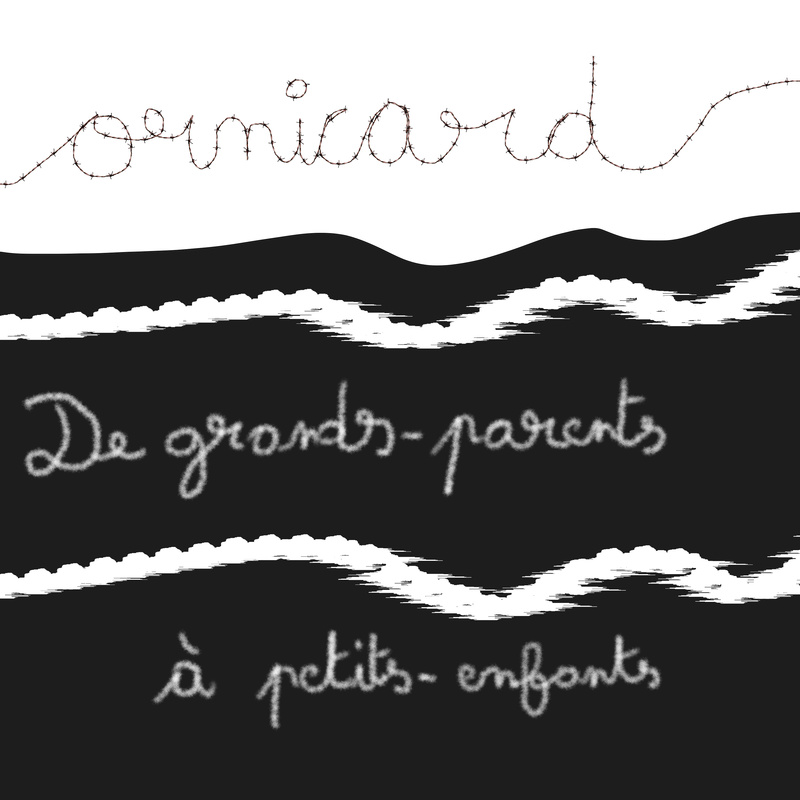 ornicard
De grands-parents
à petits-enfants